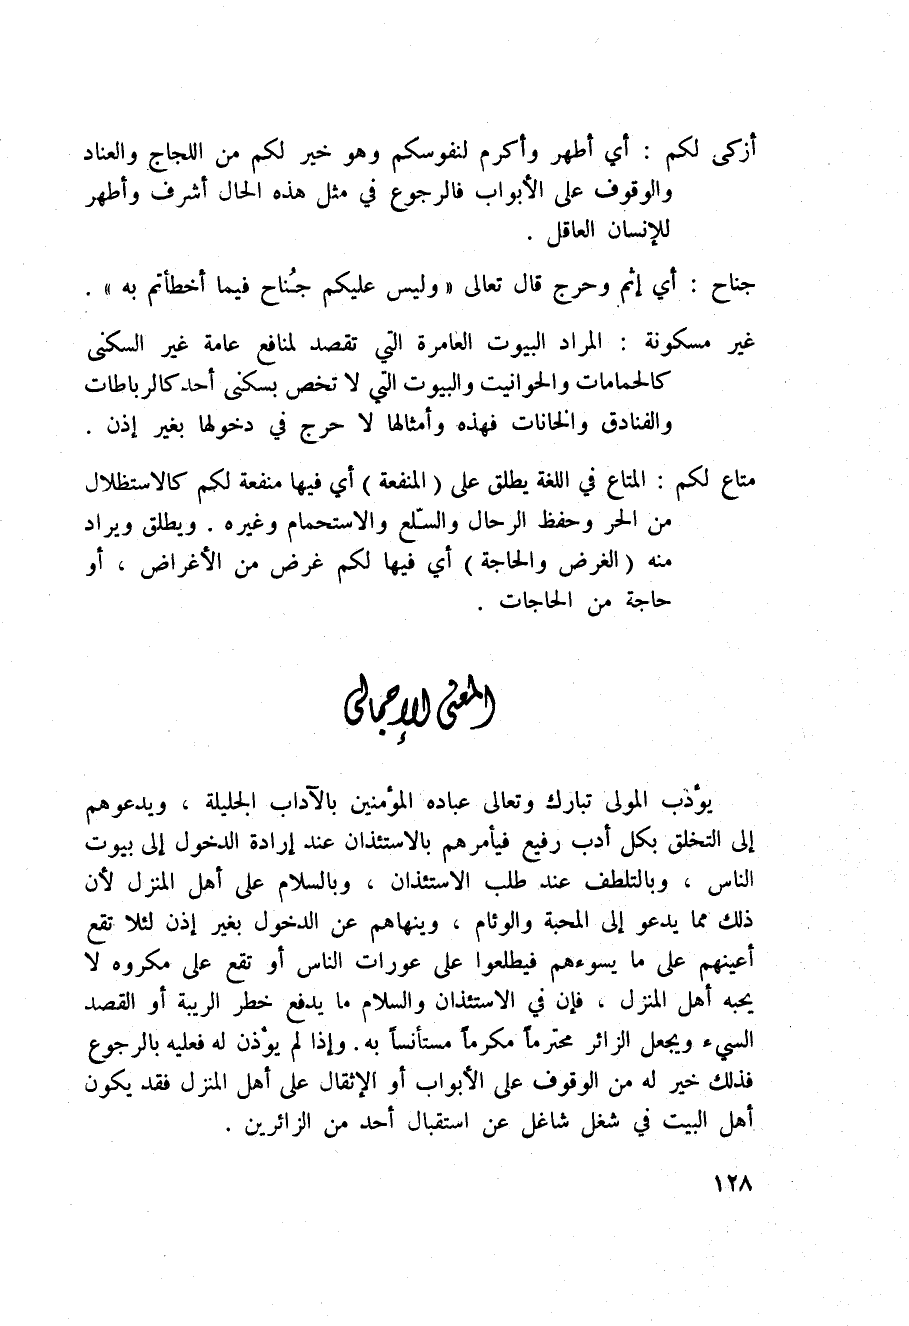 أزكى لكم : أي أطهر وأكرم لنفوسكم وهو خير لكم من اللجاج والعناد
والوقوف على الأبواب فالرجوع في مثل هذه الحال أشرف وأطهر
للإنسان العاقل .
جناح : أي إثم وحرج قال تعالى « وليس عليكم جُناح فيما أخطأتم به » .
غير مسكونة : المراد البيوت العامرة التي تقصد لمنافع عامة غير السكنى
كالحمامات والحوانيت والبيوت التي لا تخص بسكنى أحد كالرباطات
والفنادق والخانات فهذه وأمثالها لا حرج في دخولها بغير إذن .
متاع لكم : المتاع في اللغة يطلق على ( المنفعة ) أي فيها منفعة لكم كالاستظلال
من الحر وحفظ الرحال والسّلع والاستحمام وغيره . ويطلق ويراد
منه ( الغرض والحاجة ) أي فيها لكم غرض من الأغراض ، أو
حاجة من الحاجات .
المعنى الإجمالي
يؤدب المولى تبارك وتعالى عباده المؤمنين بالآداب الجليلة ، ويدعوهم
إلى التخلق بكل أدب رفيع فيأمرهم بالاستئذان عند إرادة الدخول إلى بيوت
الناس ، وبالتلطف عند طلب الاستئذان ، وبالسلام على أهل المنزل لأن
ذلك مما يدعو إلى المحبة والوئام ، وينهاهم عن الدخول بغير إذن لئلا تقع
أعينهم على ما يسوءهم فيطلعوا على عورات الناس أو تقع على مكروه لا
يحبه أهل المنزل ، فإن في الاستئذان والسلام ما يدفع خطر الريبة أو القصد
السيء ويجعل الزائر محترماً مكرماً مستأنساً به . وإذا لم يؤذن له فعليه بالرجوع
فذلك خير له من الوقوف على الأبواب أو الإثقال على أهل المنزل فقد يكون
أهل البيت في شغل شاغل عن استقبال أحد من الزائرين .
١٢٨